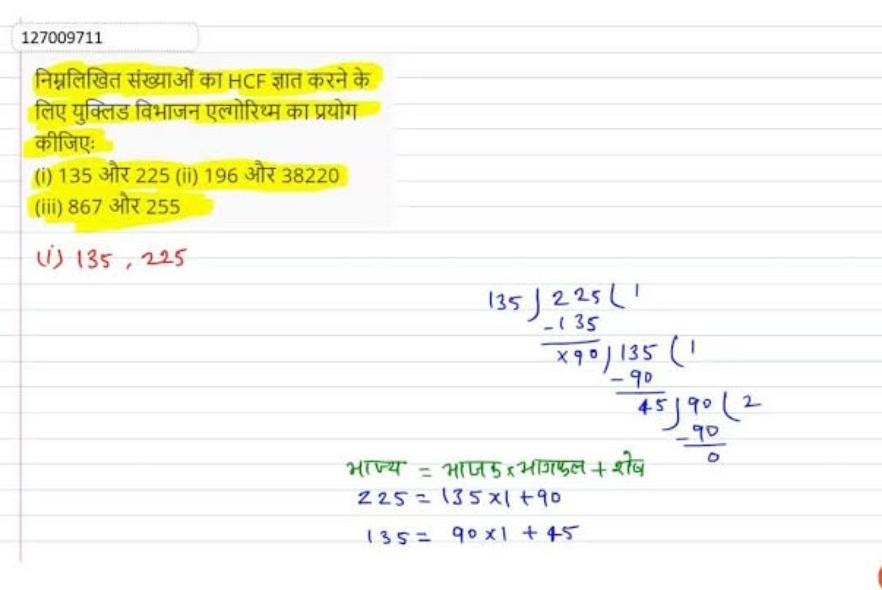 127009711
निम्नलिखित संख्याओं का HCF ज्ञात करने के
लिए युक्लिड विभाजन एल्गोरिथ्म का प्रयोग
कीजिएः
(i) 135 और 225 (ii) 196 और 38220
(iii) 867 और 255
(i) 135 , 225
135 ) 225 ( 1
-135
x90 ) 135 ( 1
-90
45 ) 90 ( 2
-90
0
भाज्य = भाजक x भागफल + शेष
225 = 135 x 1 + 90
135 = 90 x 1 + 45